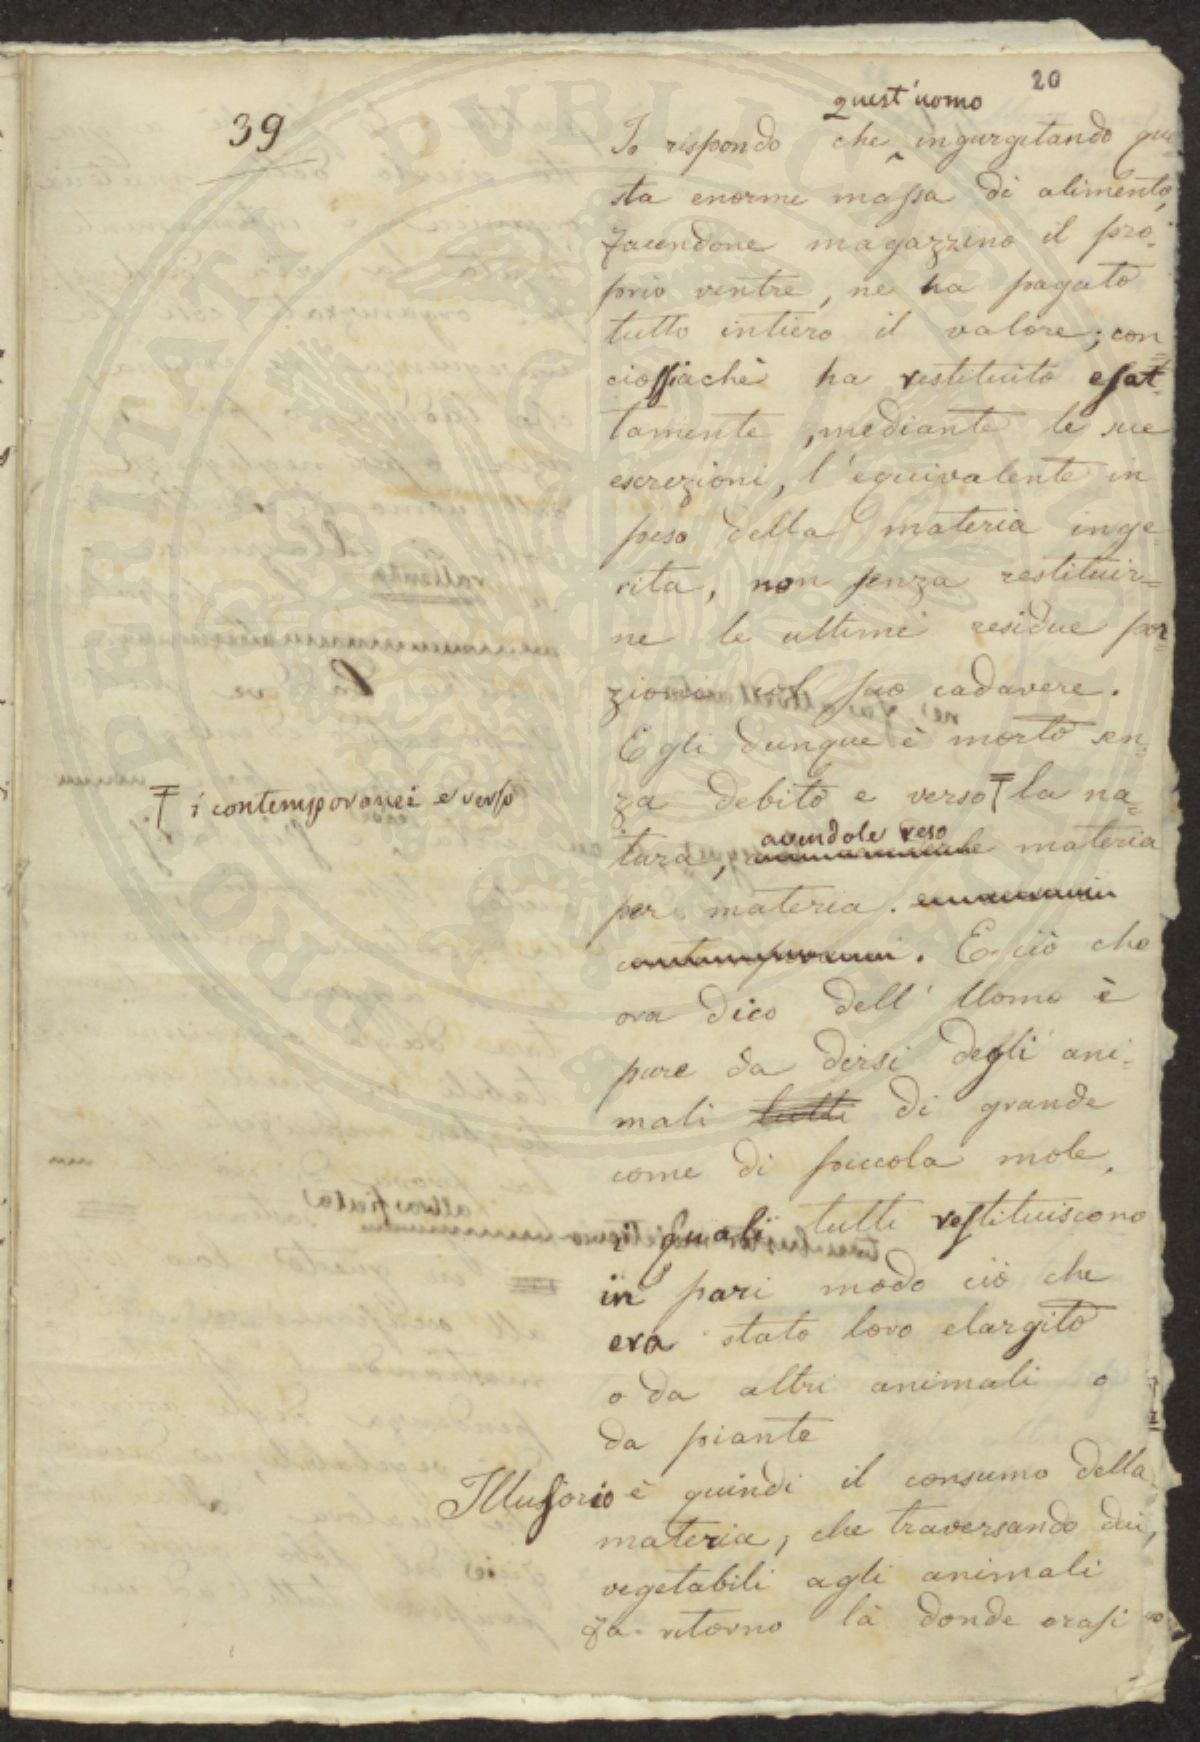 20
39
quest'uomo
Io rispondo che ingurgitando que-
sta enorme massa di alimento,
facendone magazzino il pro-
prio ventre, ne ha pagato
tutto intiero il valore; con=
ciossiachè ha restituito esat=
tamente, mediante le sue
escrezioni, l'equivalente in
peso della materia inge-
rita, non senza restituir=
ne le ultime residue por=
zioni col suo cadavere.
Egli dunque è morto sen-
za debito e verso Ŧ la na=
Ŧ i contemporanei e verso
avendole reso
tura, materia
per materia.
. E ciò che
ora dico dell'Uomo è
pure da dirsi degli ani-
mali tutti di grande
come di piccola mole,
i quali tutti restituiscono
in pari modo ciò che
era stato loro elargito
o da altri animali o
da piante
Illusorio è quindi il consumo della
materia, che traversando dai
vegetabili agli animali
fa ritorno là donde erasi
PROPERITAT PVBLICAE